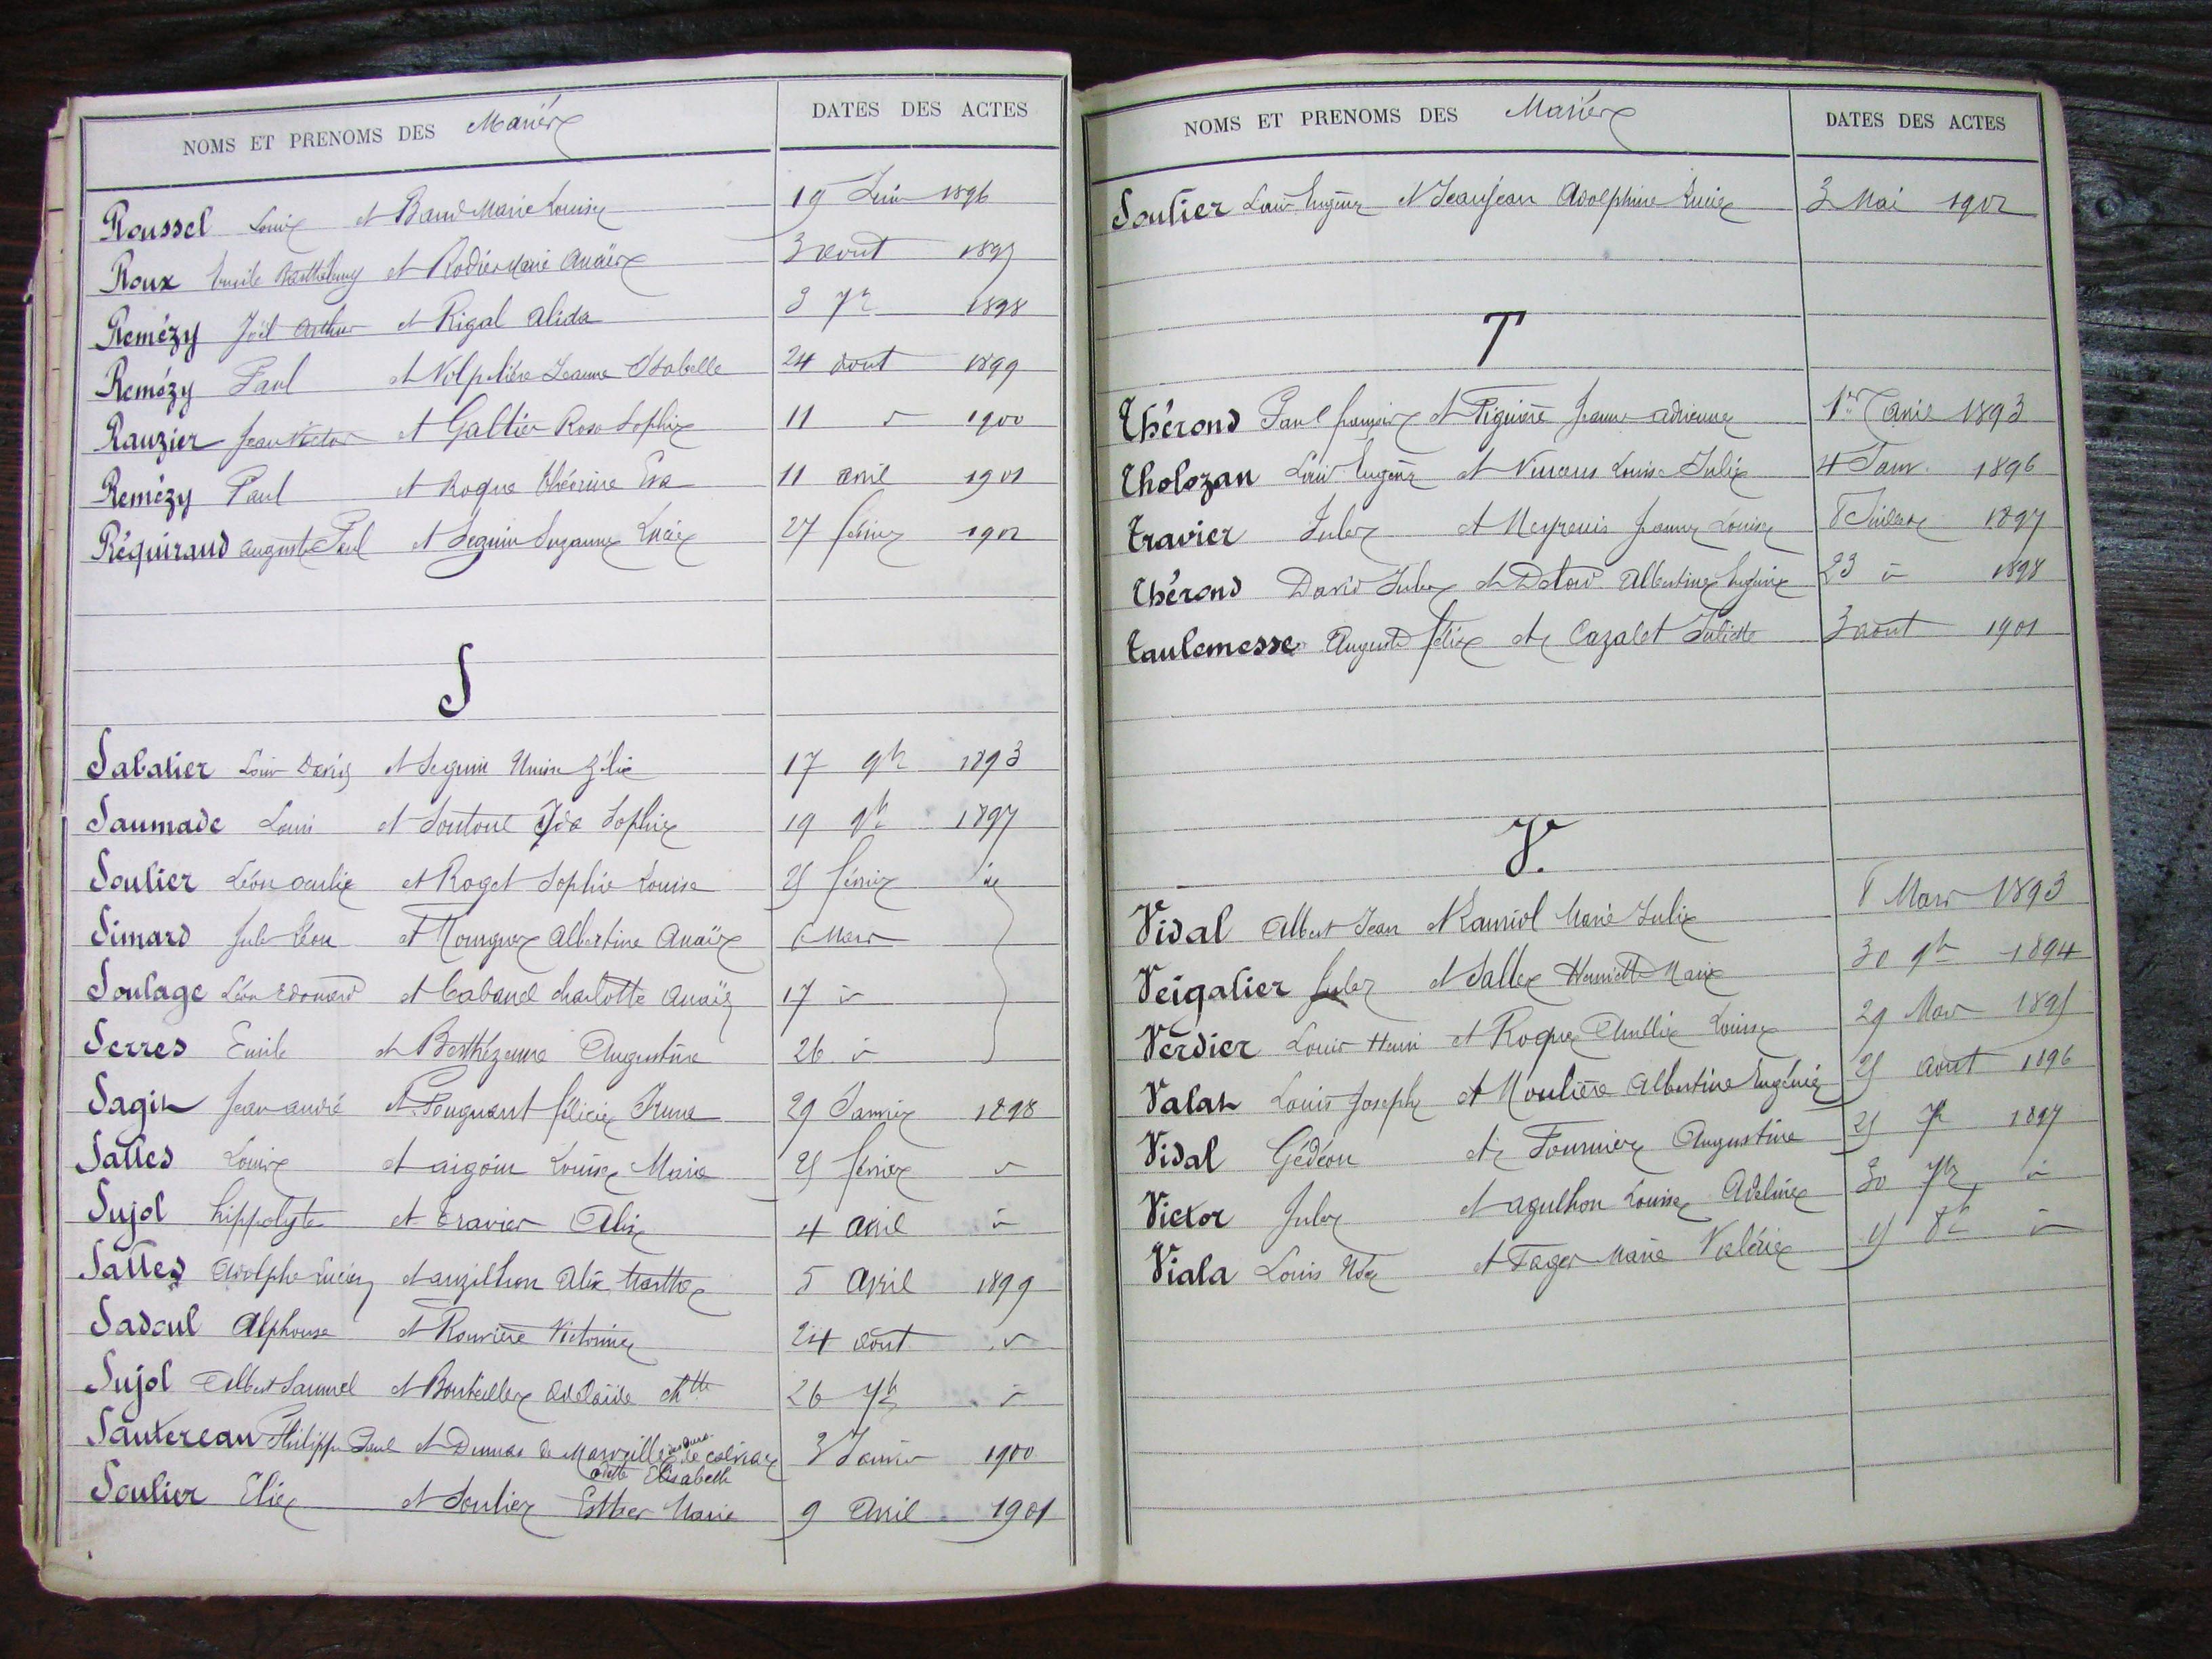 NOMS ET PRENOMS DES Mariés DATES DES ACTES
Roussel Louis et Baud Marie Louise 19 Juin 1896
Roux Emile Barthélemy et Rodier Marie Anaïs 3 aout 1897
Remézy Joël Arthur et Rigal Alida 3 7bre 1898
Remézy Paul et Volpelière Jeanne Isabelle 24 aout 1899
Rauzier Jean Victor et Galtier Rose Sophie 11 " 1900
Remézy Paul et Roque Théorine Eva 11 avril 1901
Réquirand auguste Paul et Seguin Suzanne Lucie 27 février 1902
S
Sabatier Louis et Seguin Zélie 17 9bre 1893
Saumade Louis et Soutoul Ida Sophie 19 9bre 1897
Soulier Léon et Roget Sophie Louise 25 février
Simard Jules Léon et Mourgues Albertine Anaïs 6 Mars
Soulage Léon Edouard et Cabanel charlotte Anaïs 17 "
Serres Emile et Berthézenne Augustine 26 "
Sagit Jean andré et félicie Irma 29 Janvier 1898
Salles Louis et aigoin Louise Marie 25 février "
Sujol hippolyte et Travier Alix 4 avril "
Salles Adolphe Lucien et anzilhon Alix Marthe 5 Avril 1899
Sadoul Alphonse et Rouvière Victorine 24 août "
Sujol Albert Samuel et Bouteiller Adelaïde 26 7bre "
Sautereau Philippe Paul et Dumas de Marveille de calviac 3 Janvier 1900
odette Elisabeth
Soulier Elie et Soulier Esther Marie 9 Avril 1901
NOMS ET PRENOMS DES Mariés DATES DES ACTES
Soulier Louis Eugène et Jeanjean Adolphine Lucie 3 Mai 1902
T
Thérond Paul françois et Figuière Jeanne adrienne 1er avril 1893
Tholozan Louis Eugène et Vincens Louise Julie 4 Janv. 1896
Travier Jules et Meyrueis Jeanne Louise 8 Juillet 1897
Thérond David Jules et Delord Albertine Eugénie 23 " 1898
Taulemesse Auguste félix et Cazalet Juliette 3 août 1901
V.
Vidal Albert Jean et Marie Julie 8 Mars 1893
Veigalier Jules et Salles Henriette Marie 30 9bre 1894
Verdier Louis Henri et Roque Louise 29 Mars 1895
Valat Louis Joseph et Moulière Albertine Eugénie 25 août 1896
Vidal Gédéon et Fournier Augustine 25 7bre 1897
Victor Jules et agulhon Louise Adeline 30 7bre "
Viala Louis Noé et Fages Marie Valérie 8bre "